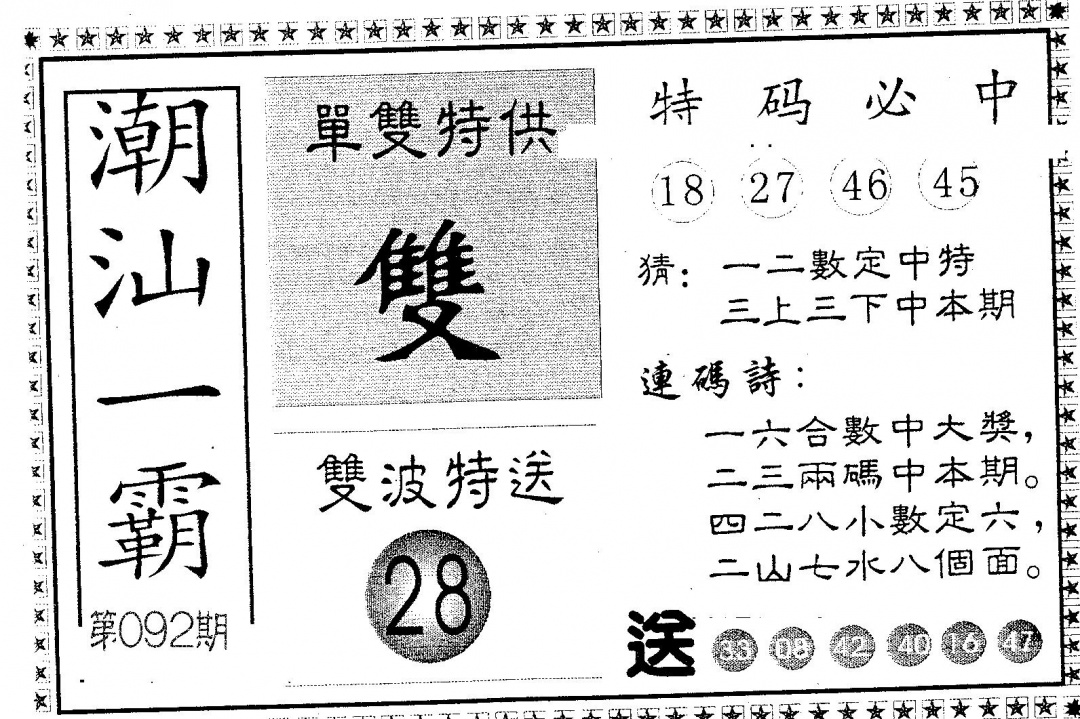 潮汕一霸
第092期
單雙特供
雙
雙波特送
28
特码必中
18 27 46 45
猜：一二數定中特
三上三下中本期
連碼詩：
一六合數中大獎，
二三兩碼中本期。
四二八小數定六，
二山七水八個面。
送 33 08 42 40 16 47